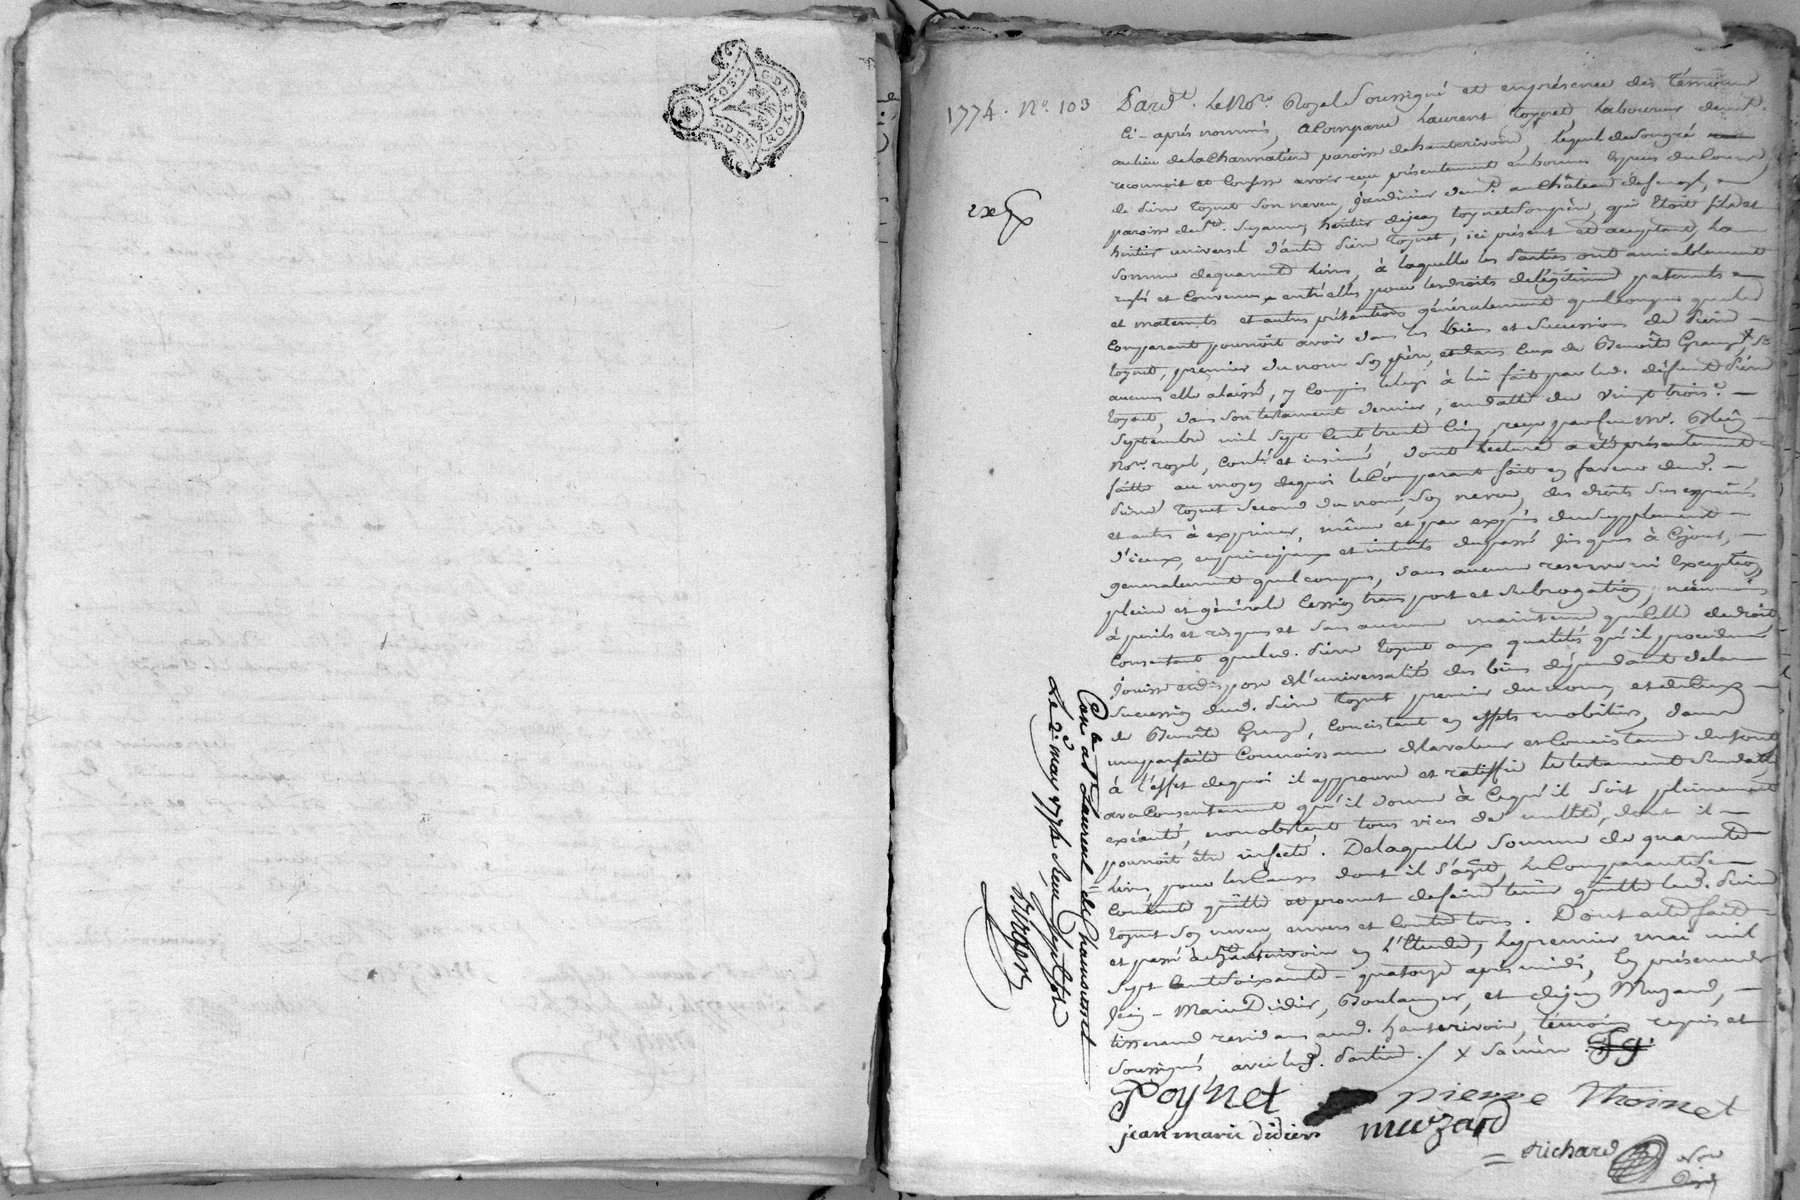 GDELYON
1774. N°. 103
Pardt. le Nore. Royal Soussigné et en présence des témoins
ci-après nommés, a comparu Laurent toynet, laboureur demt.
au lieu de la Charmatière paroisse de hauterivoire, lequel de son gré
reconnoit et Confesse avoir reçu présentement en bonnes Espèces du Cours,
de Pierre toynet son neveu, Jardinier demt. au Château de
paroisse de Ste. héritier de Jean toynet son père, qui étoit fils et
héritier universel d'autre Pierre toynet, ici présent et aceptant, la
somme de quarante livres, à laquelle les Parties ont amiablement
reglé et Convenu entr'elles pour les droits de légitime paternels
et maternels et autres prétentions généralement quelconques que le
Comparant pourroit avoir dans les biens et Successions de Pierre
toynet, premier du nom son père, et dans Ceux de Benoîte Grange x, Si
aucuns elle a laissé, y Compris le legs à lui fait par led. défunt Pierre
toynet, dans son testament dernier, en datte du vingt trois
Septembre mil Sept Cent trente Cinq reçu par feu me.
Nore. royal, Conlé. et insinué, dont lecture a été présentement
faitte au moyen de quoi le Comparant fait en faveur dud.
Pierre toynet Second du nom, son neveu, des droits Sus exprimés
et autres à exprimer, même et par exprès du Supplement
d'iceux, en principaux et interets du passé Jusques à Ce jour,
generalement quelconques, sans aucune reserve ni Exception,
pleine et générale Cession transport et Subrogation, néanmoins
à perils et risques et sans aucune maintenue que Celle de droit,
Consentant que led. Pierre toynet aux qualités qu'il procède
Jouisse et dispose de l'universalité des biens dépendant de la
Succession dud. Pierre toynet premier du nom, et de Celle
de Benoîte Grange, Concistant en effets mobiliers, dans
une parfaite Connoissance de la valeur et Concistance du tout
à l'effet de quoi il approuve et ratiffie le testament Susdatté
avec Consentement qu'il donne à Ce qu'il soit pleinement
exécuté, nonobstant tous vices de nullité, dont il
pourroit être infecté. De laquelle Somme de quarante
livres, pour les Causes dont il S'agit, le Comparant Se
Contente quitte et promet de faire tenir quitte led. Pierre
toynet son neveu, envers et Contre tous. Dont acte fait
et passé à hauterivoire en l'Etude, le premier mai mil
Sept Cent Soixante-quatorze après midi, En présence de
Jean-Marie Didier, Boulanger, et de Jean Muzard,
tisserand residans aud. hauterivoire, témoins requis et
Soussignés, avec lesd. Parties. / x Sa mère
Conlé. à St. Laurent de Chamousset
Le 2. may 1774 Reçu Sept Sols
toynet pierre thoinet
jean marie didier muzard
Richard Nore